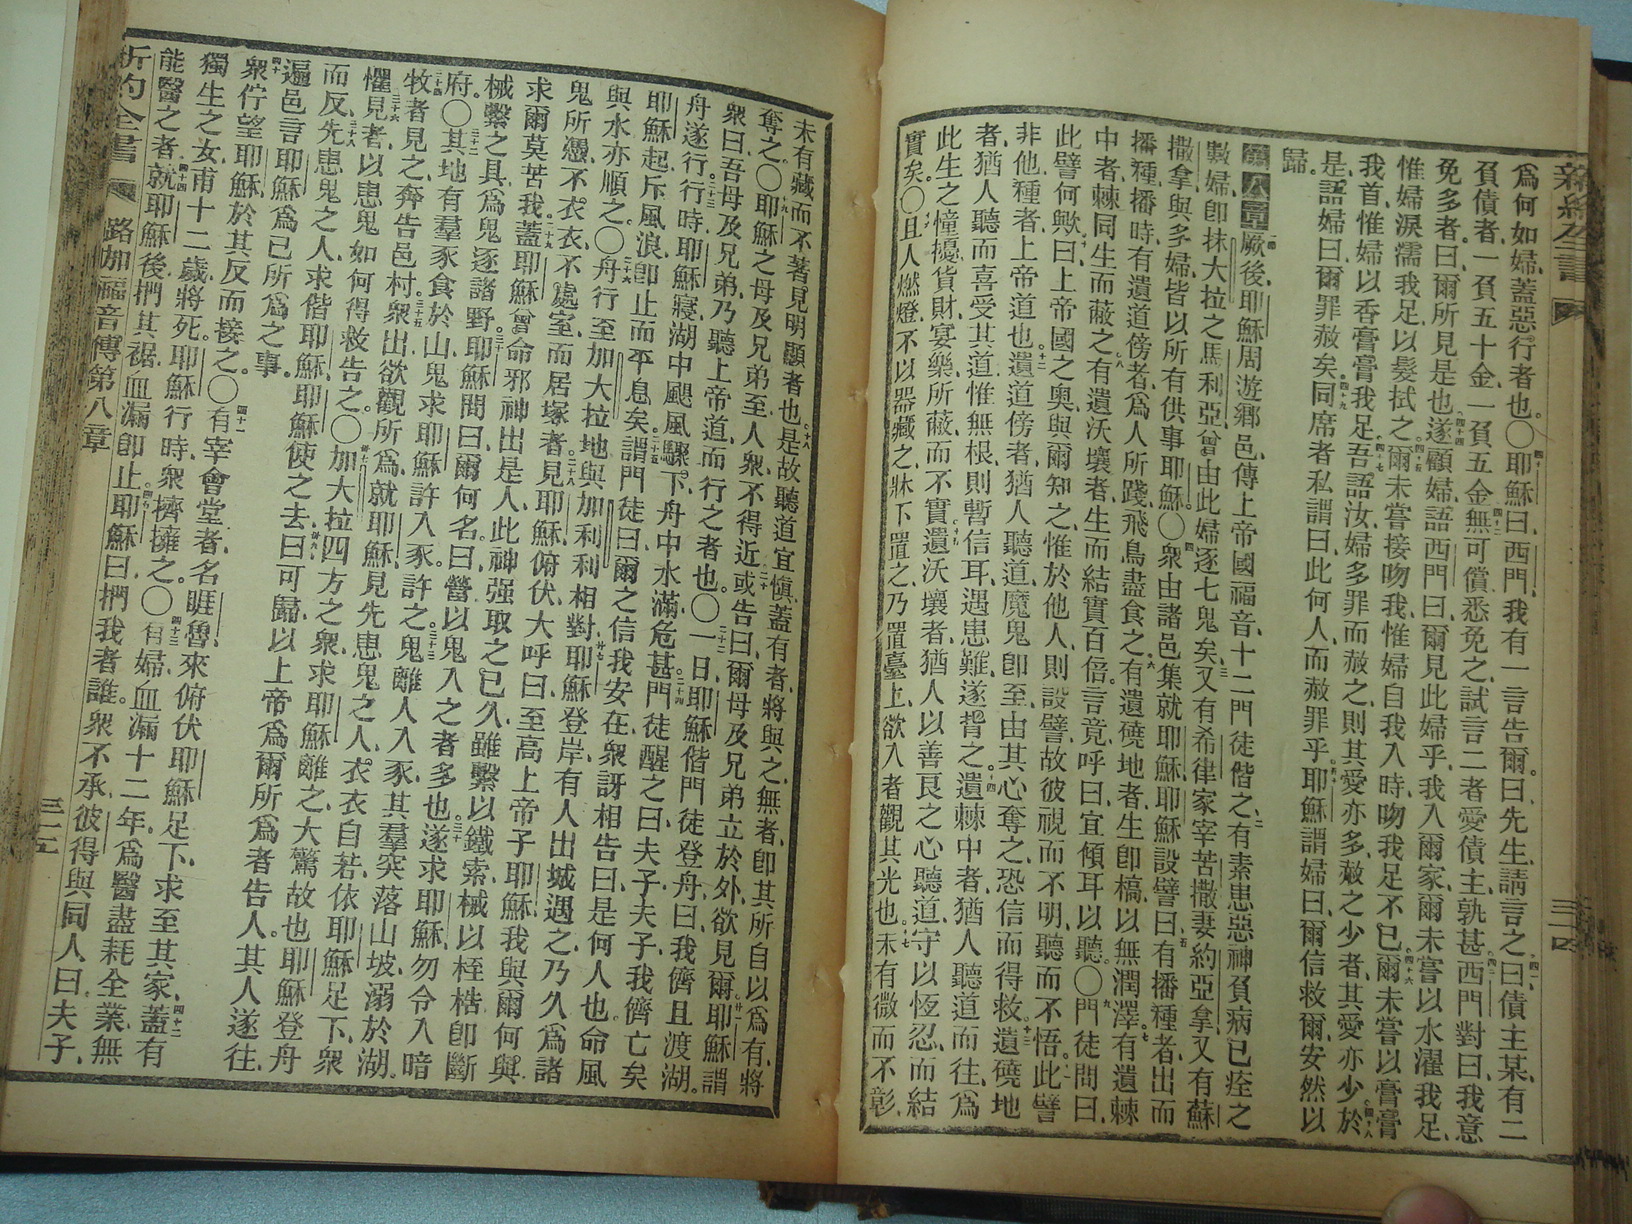 新約全書
三十四
爲何如婦、蓋惡行者也。〇耶穌曰、西門、我有一言告爾。曰、先生、請言之、曰、債主某、有二
負債者、一負五十金、一負五金、無可償、悉免之、試言二者愛債主、孰甚、西門對曰、我意
免多者、曰、爾所見是也、遂顧婦、語西門曰、爾見此婦乎、我入爾家、爾未嘗以水濯我足、
惟婦淚濡我足、以髮拭之、爾未嘗接吻我、惟婦自我入時、吻我足不已、爾未嘗以膏膏
我首、惟婦以香膏膏我足、吾語汝、婦多罪而赦之、則其愛亦多、赦之少者、其愛亦少、於
是語婦曰、爾罪赦矣、同席者私謂曰、此何人、而赦罪乎、耶穌謂婦曰、爾信救爾、安然以
歸。
第八章 厥後、耶穌周遊鄉邑、傳上帝國福音、十二門徒偕之、有素患惡神負病已痊之
數婦、卽抹大拉之馬利亞、曾由此婦逐七鬼矣、又有希律家宰苦撒妻約亞拿、又有蘇
撒拿、與多婦、皆以所有供事耶穌。〇衆由諸邑集、就耶穌、耶穌設譬曰、有播種者出而
播種、播時、有遺道傍者、爲人所踐、飛鳥盡食之、有遺磽地者、生卽槁、以無潤澤、有遺棘
中者、棘同生而蔽之、有遺沃壤者、生而結實百倍、言竟、呼曰、宜傾耳以聽。〇門徒問曰、
此譬何歟、曰、上帝國之奧、與爾知之、惟於他人、則設譬、故彼視而不明、聽而不悟、此譬
非他、種者、上帝道也、遺道傍者、猶人聽道、魔鬼卽至、由其心奪之、恐信而得救、遺磽地
者、猶人聽而喜受其道、惟無根、則暫信耳、遇患難、遂背之、遺棘中者、猶人聽道而往、爲
此生之憧擾、貨財、宴樂、所蔽、而不實、遺沃壤者、猶人以善良之心聽道、守以恆忍、而結
實矣。〇且人燃燈、不以器藏之、牀下置之、乃置臺上、欲入者觀其光也、未有微而不彰、
未有藏而不著見明顯者也、是故聽道宜愼、蓋有者、將與之、無者、卽其所自以爲有、將
奪之。〇耶穌之母、及兄弟至、人衆、不得近、或告曰、爾母及兄弟、立於外、欲見爾、耶穌謂
衆曰、吾母、及兄弟、乃聽上帝道、而行之者也。〇一日、耶穌偕門徒登舟、曰、我儕且渡湖。
舟遂行、行時、耶穌寢、湖中颶風驟下、舟中水滿、危甚、門徒醒之曰、夫子夫子、我儕亡矣、
耶穌起、斥風浪、卽止而平息矣、謂門徒曰、爾之信我安在、衆訝相告曰、是何人也、命風
與水、亦順之。〇舟行至加大拉地、與加利利相對、耶穌登岸、有人出城遇之、乃久爲諸
鬼所憑、不衣衣、不處室、而居塚者、見耶穌、俯伏、大呼曰、至高上帝子耶穌、我與爾何與、
求爾莫苦我、蓋耶穌曾命邪神出是人、此神强取之已久、雖繫以鐵索、械以桎梏、卽斷
械繫之具、爲鬼逐諸野、耶穌問曰、爾何名、曰、營、以鬼入之者多也、遂求耶穌、勿令入暗
府。〇其地有羣豕食於山、鬼求耶穌許入豕、許之、鬼離人入豕、其羣突落山坡、溺於湖、
牧者見之、奔告邑村、衆出欲觀所爲、就耶穌、見先患鬼之人、衣衣自若、依耶穌足下、衆
懼、見者、以患鬼如何得救告之。〇加大拉四方之衆、求耶穌離之、大驚故也、耶穌登舟
而反、先患鬼之人、求偕耶穌、耶穌使之去曰、可歸、以上帝爲爾所爲者告人、其人遂往、
遍邑言耶穌爲己所爲之事。
衆佇望耶穌、於其反而接之。〇有宰會堂者、名睚魯、來俯伏耶穌足下、求至其家、蓋有
獨生之女、甫十二歲、將死。耶穌行時、衆擠擁之。〇有婦血漏十二年、爲醫盡耗全業、無
能醫之者、就耶穌後、捫其裾、血漏卽止、耶穌曰、捫我者誰。衆不承、彼得與同人曰、夫子、
新約全書
路加福音傳第八章
三十五